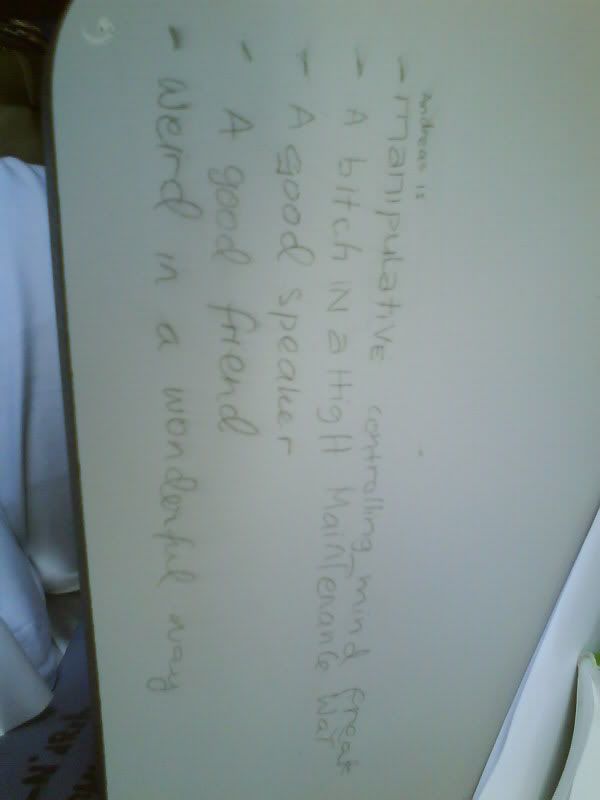 Andreas is
- Manipulative controlling mind freak
- A bitch IN a HigH MaiNTenance Way
- A good speaker
- A good friend
- Weird in a wonderful way